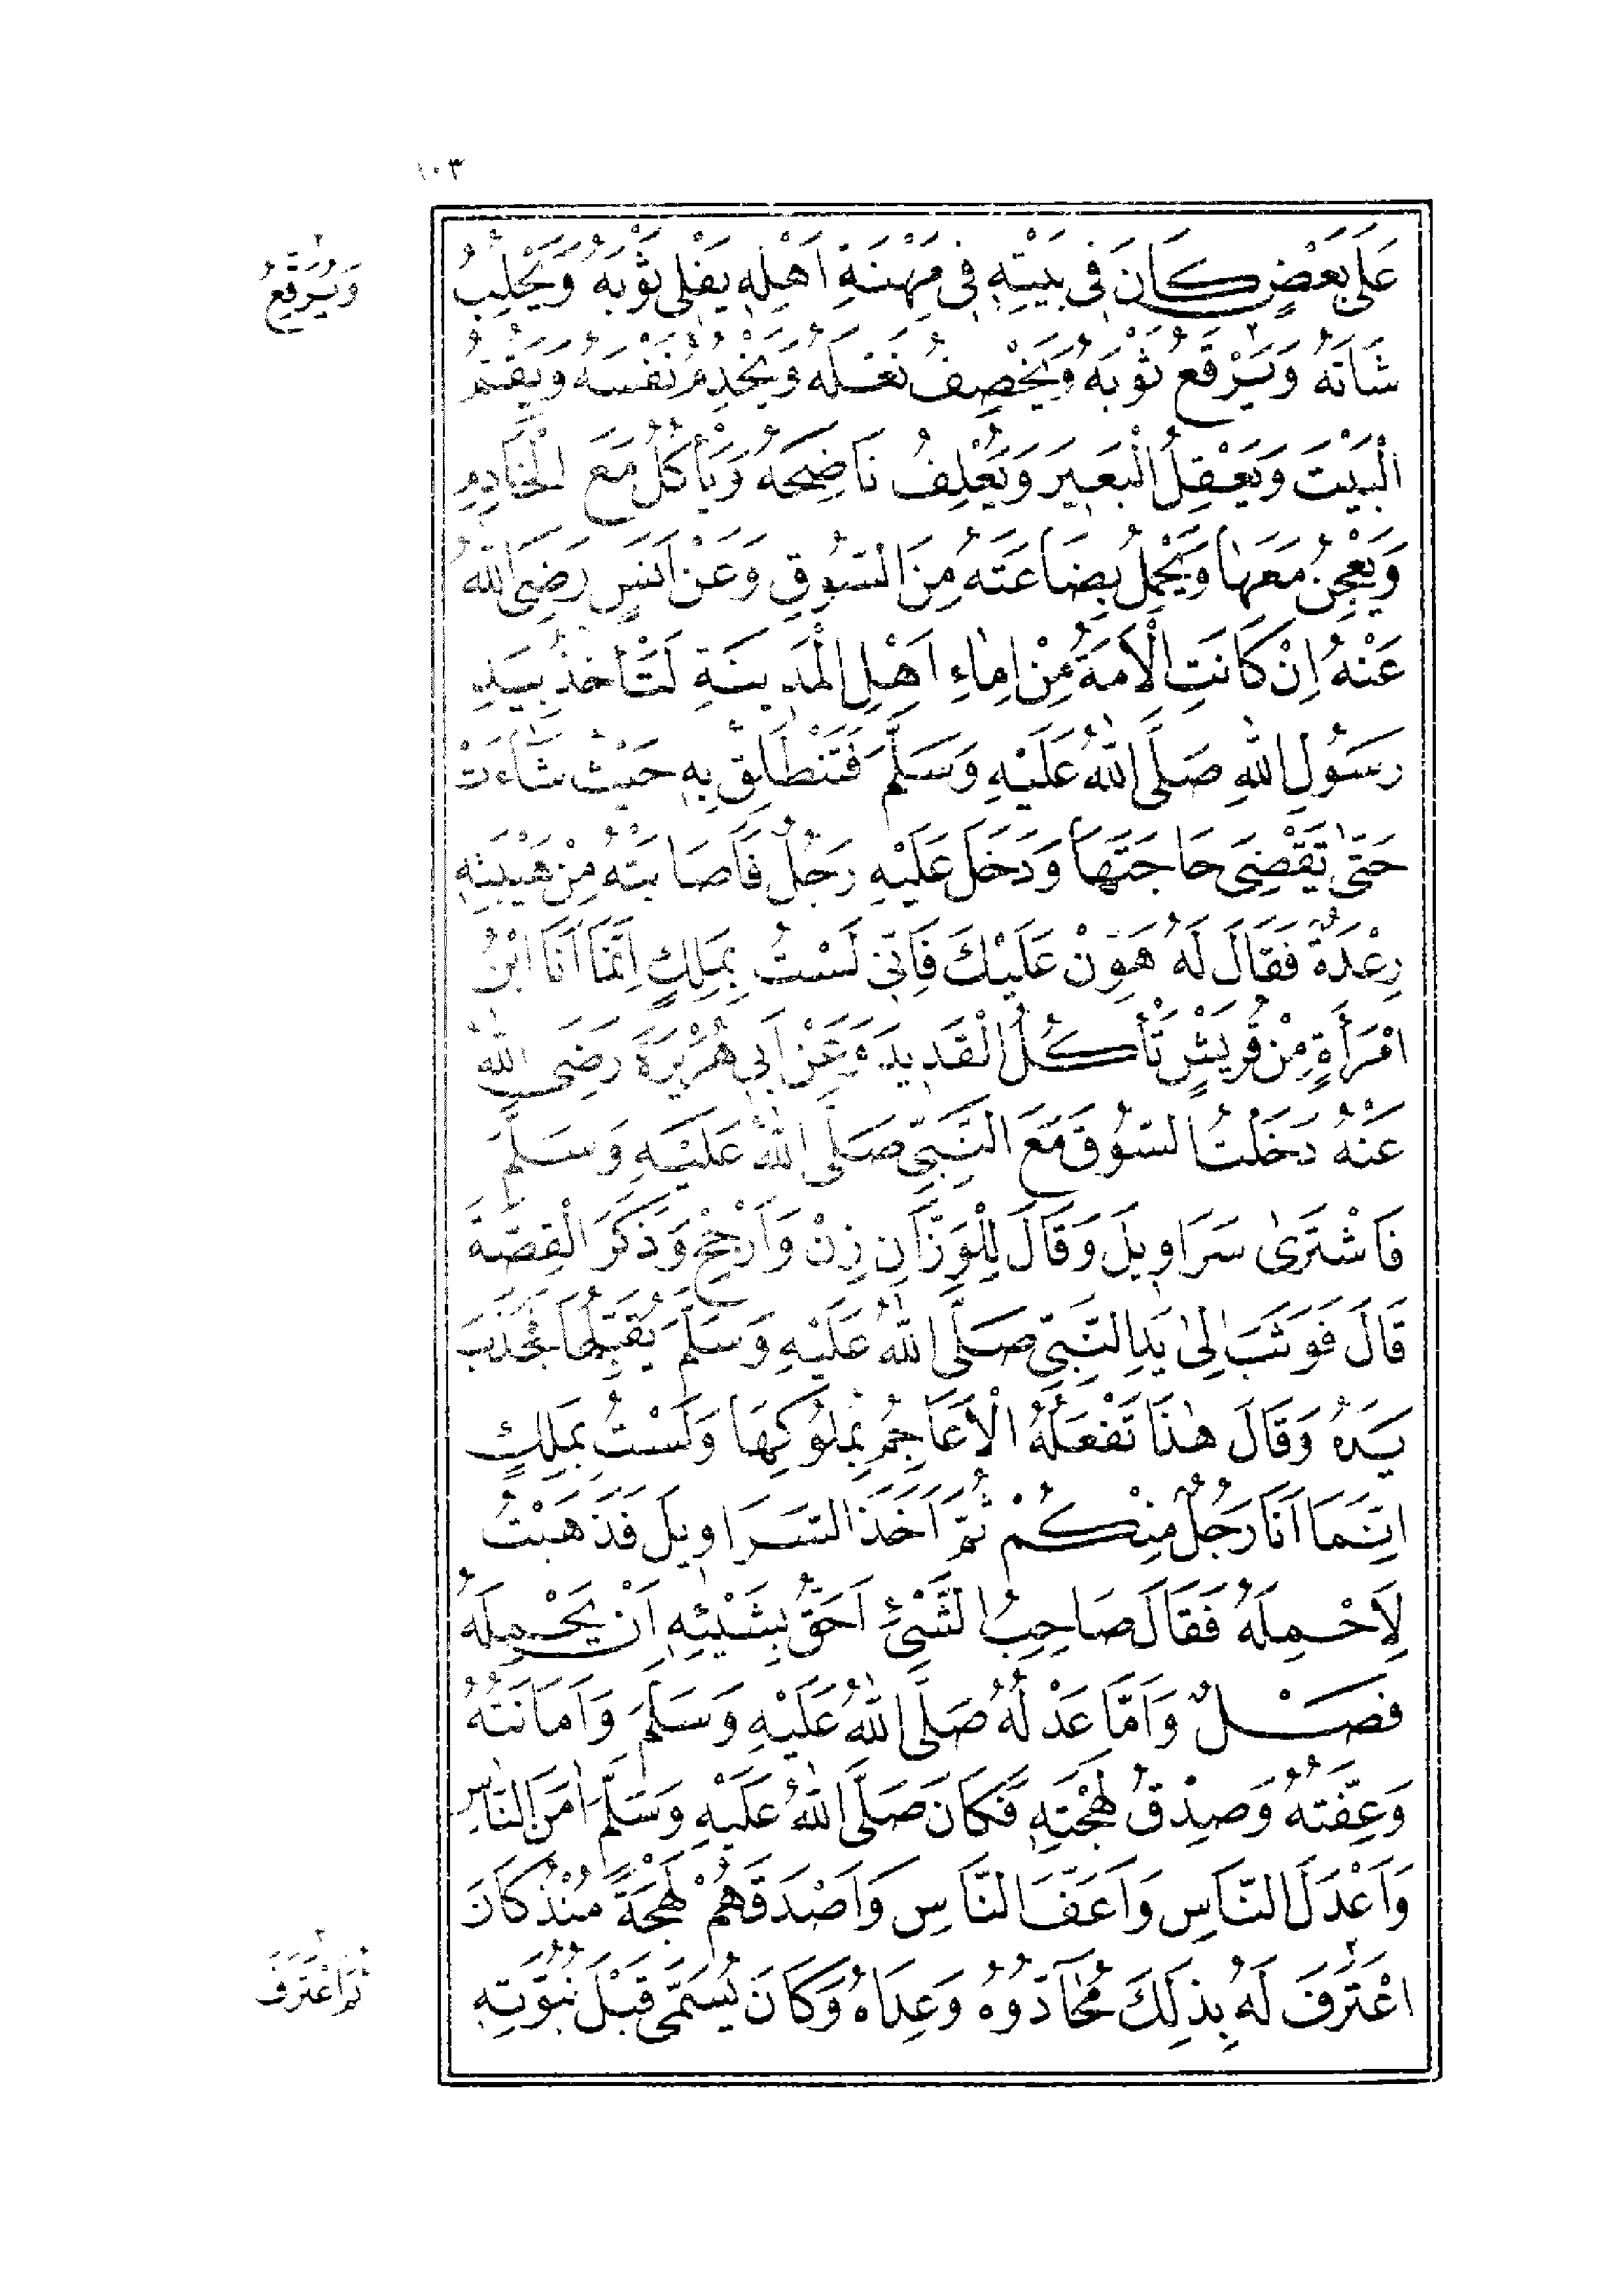 ١٠٣
عَلٰى بَعْضٍ كَانَ فِى بَيْتِهِ فِى مِهْنَةِ اَهْلِهِ يَفْلِى ثَوْبَهُ وَيَحْلِبُ
وَيُرَقِّعُ
شَاتَهُ وَيَرْقَعُ ثَوْبَهُ وَيَخْصِفُ نَعْلَهُ وَيَخْدِمُ نَفْسَهُ وَيَقُمُّ
الْبَيْتَ وَيَعْقِلُ الْبَعِيرَ وَيَعْلِفُ نَاضِحَهُ وَيَأْكُلُ مَعَ الْخَادِمِ
وَيَعْجِنُ مَعَهَا وَيَحْمِلُ بِضَاعَتَهُ مِنَ السُّوقِ وَعَنْ اَنَسٍ رَضِىَ اللّٰهُ
عَنْهُ اِنْ كَانَتِ الْاَمَةُ مِنْ اِمَاءِ اَهْلِ الْمَدِينَةِ لَتَأْخُذُ بِيَدِ
رَسُولِ اللّٰهِ صَلَّى اللّٰهُ عَلَيْهِ وَسَلَّمَ فَتَنْطَلِقُ بِهِ حَيْثُ شَاءَتْ
حَتّٰى تَقْضِىَ حَاجَتَهَا وَدَخَلَ عَلَيْهِ رَجُلٌ فَاَصَابَتْهُ مِنْ هَيْبَتِهِ
رِعْدَةٌ فَقَالَ لَهُ هَوِّنْ عَلَيْكَ فَاِنِّى لَسْتُ بِمَلِكٍ اِنَّمَا اَنَا ابْنُ
امْرَأَةٍ مِنْ قُرَيْشٍ تَأْكُلُ الْقَدِيدَ وَعَنْ اَبِى هُرَيْرَةَ رَضِىَ اللّٰهُ
عَنْهُ دَخَلْتُ السُّوقَ مَعَ النَّبِىِّ صَلَّى اللّٰهُ عَلَيْهِ وَسَلَّمَ
فَاشْتَرٰى سَرَاوِيلَ وَقَالَ لِلْوَزَّانِ زِنْ وَاَرْجِحْ وَذَكَرَ الْقِصَّةَ
قَالَ فَوَثَبَ اِلٰى يَدِ النَّبِىِّ صَلَّى اللّٰهُ عَلَيْهِ وَسَلَّمَ يُقَبِّلُهَا فَجَذَبَ
يَدَهُ وَقَالَ هٰذَا تَفْعَلُهُ الْاَعَاجِمُ بِمُلُوكِهَا وَلَسْتُ بِمَلِكٍ
اِنَّمَا اَنَا رَجُلٌ مِنْكُمْ ثُمَّ اَخَذَ السَّرَاوِيلَ فَذَهَبْتُ
لِاَحْمِلَهُ فَقَالَ صَاحِبُ الشَّىْءِ اَحَقُّ بِشَيْئِهِ اَنْ يَحْمِلَهُ
فَصْلٌ وَاَمَّا عَدْلُهُ صَلَّى اللّٰهُ عَلَيْهِ وَسَلَّمَ وَاَمَانَتُهُ
وَعِفَّتُهُ وَصِدْقُ لَهْجَتِهِ فَكَانَ صَلَّى اللّٰهُ عَلَيْهِ وَسَلَّمَ اٰمَنَ النَّاسِ
وَاَعْدَلَ النَّاسِ وَاَعَفَّ النَّاسِ وَاَصْدَقَهُمْ لَهْجَةً مُنْذُ كَانَ
اعْتَرَفَ لَهُ بِذٰلِكَ مُحَادُّوهُ وَعِدَاهُ وَكَانَ يُسَمّٰى قَبْلَ نُبُوَّتِهِ
ثُمَّ اعْتَرَفَ